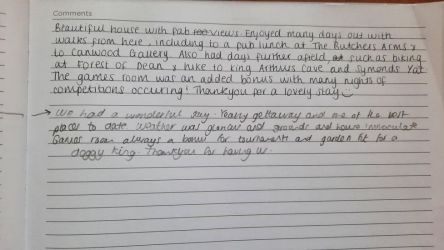 Comments
Beautiful house with fab views. Enjoyed many days out with
walks from here, including to a pub lunch at The Butchers Arms &
to Canwood Gallery. Also had days further afield, such as biking
at Forest of Dean & hike to King Arthurs Cave and Symonds Yat
The games room was an added bonus with many nights of
competitions occuring! Thankyou for a lovely stay
We had a wonderful stay. Yearly gettaway and one of the best
places to date weather was glorious and grounds and house immaculate
Games room always a bonus for tournaments and garden fit for a
doggy king. Thankyou for having us.